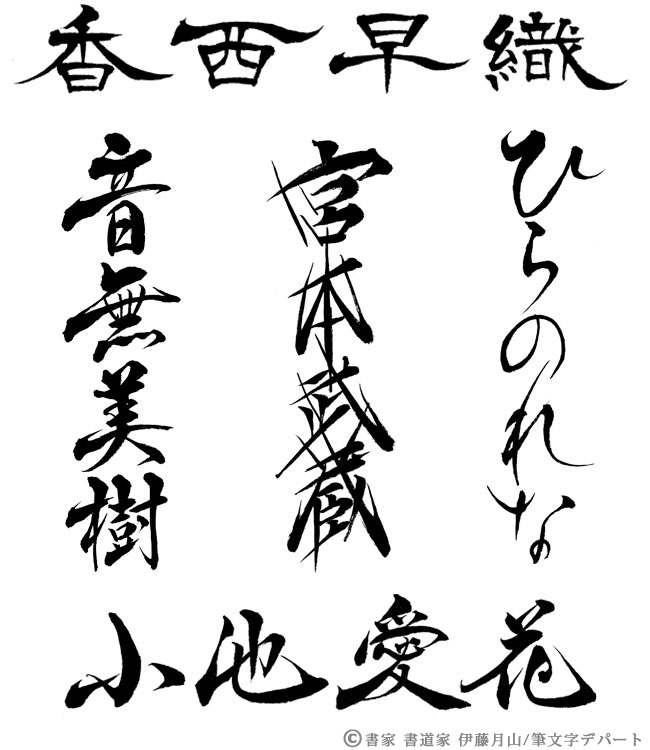 香西早織
ひらのれな
宮本武蔵
音無美樹
小池愛花
©書家 書道家 伊藤月山/筆文字デパート